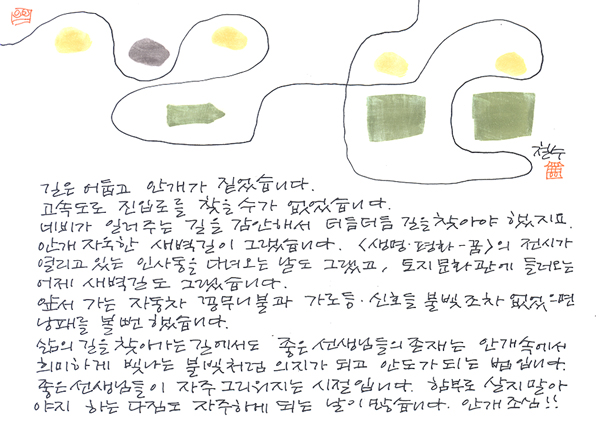 철수
길은 어둡고 안개가 짙었습니다.
고속도로 진입로를 찾을수가 없었습니다.
네비가 일러주는 길을 감안해서 더듬더듬 길을찾아야 했었지요.
안개 자욱한 새벽길이 그랬습니다. 〈생명·평화-꿈〉의 전시가
열리고 있는 인사동을 다녀오는 날도 그랬고, 토지문화관에 들러오는
어제 새벽길도 그랬습니다.
앞서 가는 자동차 꽁무니불과 가로등·신호등 불빛조차 없었으면
낭패를 볼뻔 했습니다.
삶의 길을 찾아가는길에서도 좋은선생님들의 존재는 안개속에서
희미하게 빛나는 불빛처럼 의지가 되고 안도가되는 법입니다.
좋은선생님들이 자주 그리워지는 시절입니다. 함부로 살지말아
야지 하는 다짐도 자주하게 되는 날이많습니다. 안개조심!!